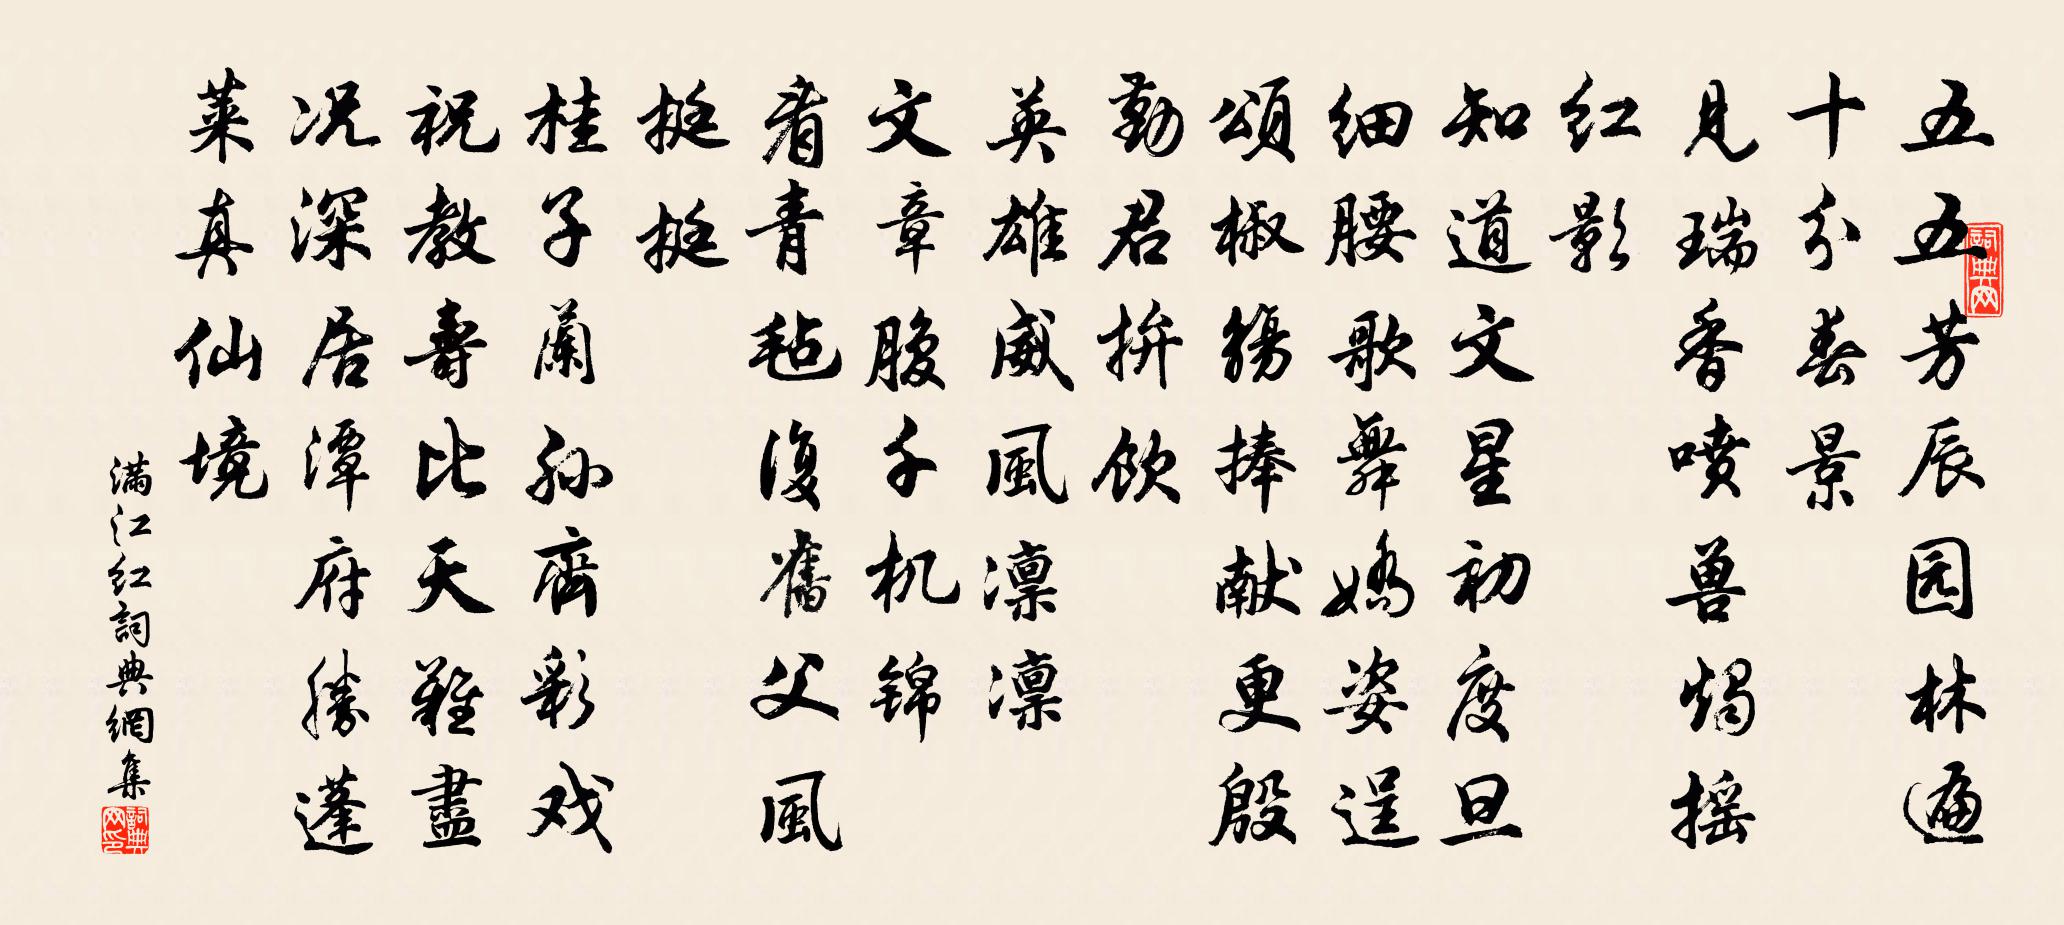 五五芳辰园林遍
十分春景
見瑞香噴兽燭摇
红影
知道文星初度旦
细腰歌舞嬌姿逞
頌椒觴捧献更殷
勤君拚饮
英雄威風凛凛
文章腹千机锦
看青毡復舊父風
挺挺
桂子蘭孙齊彩戏
祝教壽比天難盡
况深居潭府勝蓬
莱真仙境
满江红詞典網集
詞典网
詞典网印